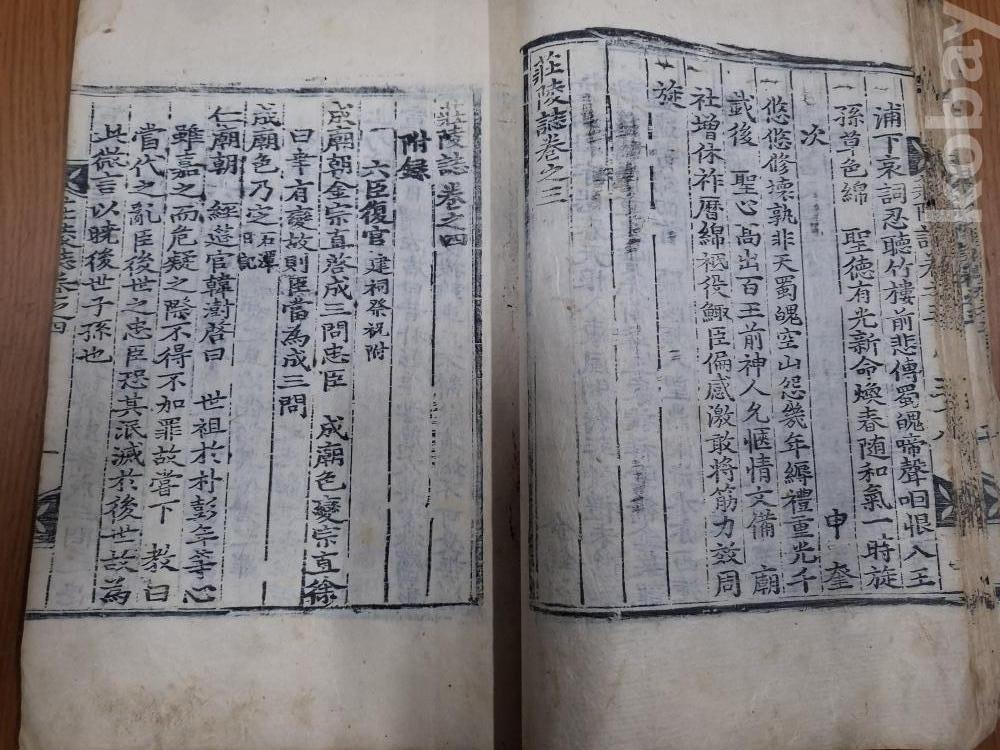 浦下哀詞忍聽竹樓前悲傳蜀魄啼聲咽恨入王
孫草色綿 聖德有光新命煥春随和氣一時旋
次 申奎
悠悠修壞孰非天蜀魄空山怨幾年縟禮重光千
武後 聖心高出百王前神人允愜情文備 廟
社增休祚曆綿祗役鯫臣偏感激敢將筋力效周
旋
莊陵誌卷之三
莊陵誌卷之四
附録
一 六臣復官 建祠祭祝附
成廟朝金宗直啓成三問忠臣 成廟色變宗直徐
曰幸有變故則臣當為成三問
成廟色乃定 石潭日記
仁廟朝 經筵官韓澍啓曰 世祖於朴彭年等心
雖嘉之而危疑之際不得不加罪故嘗下 教曰
當代之亂臣後世之忠臣恐其泯滅於後世故為
此微言以曉後世子孫也
莊陵誌卷之四 一
kobay